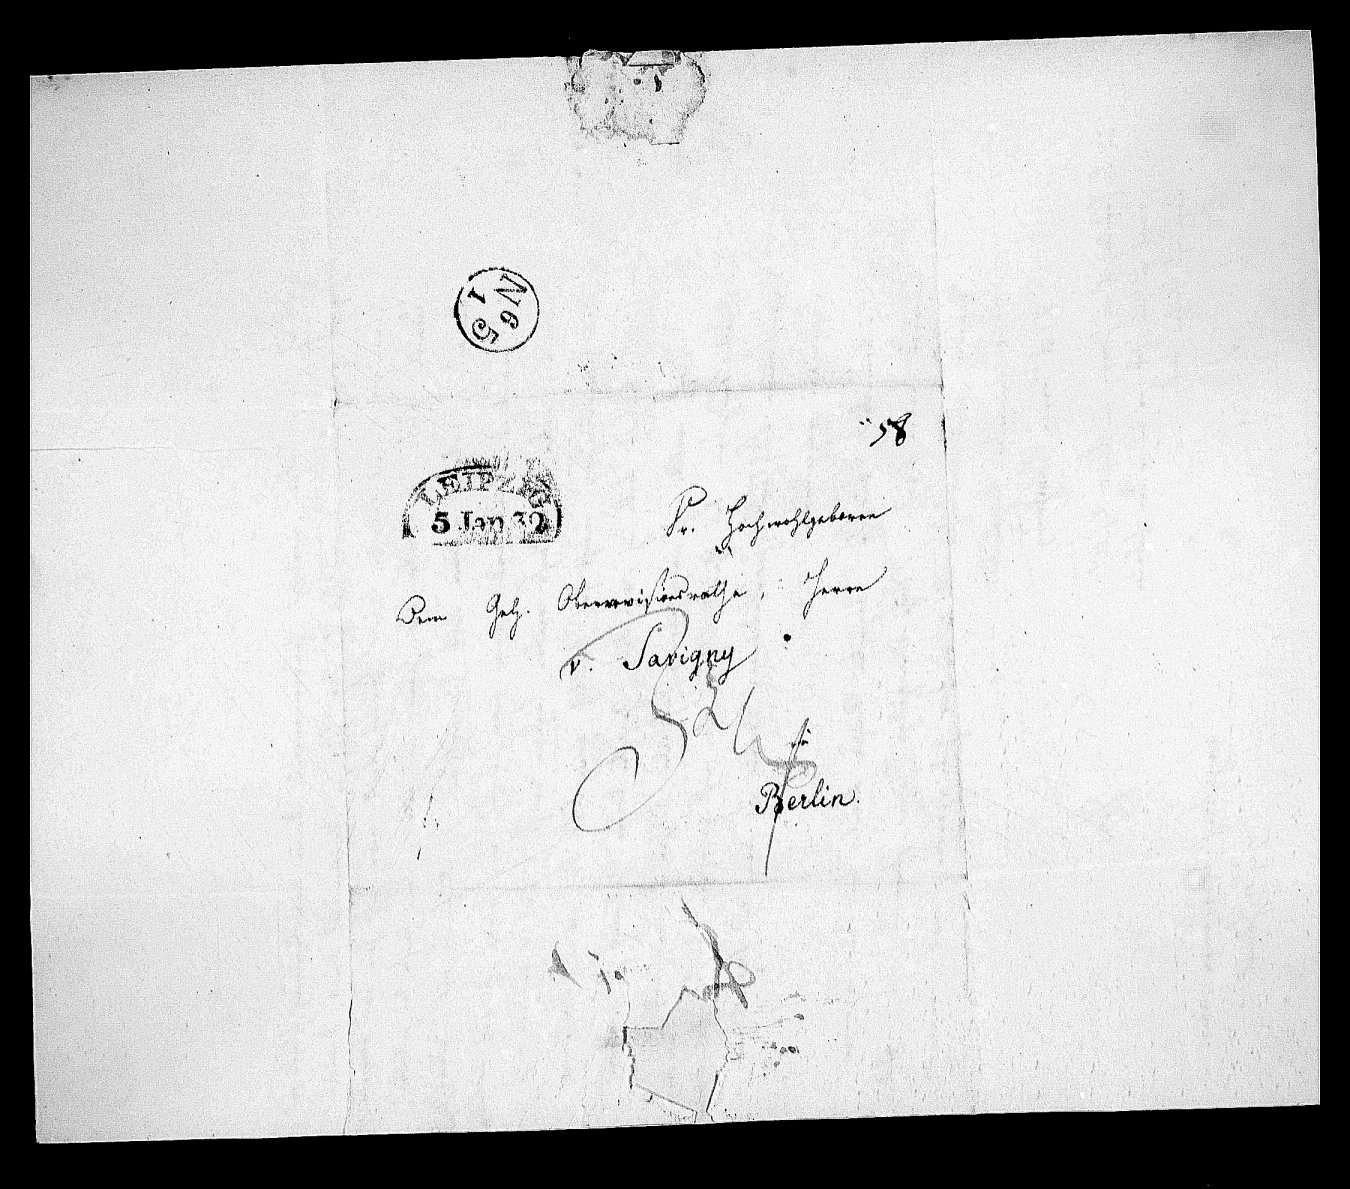 N 1
6 5
58
LEIPZIG
5 Jan 32
Sr. Hochwohlgeboren
Dem Geh. Oberrevisionsrathe, Herrn
v. Savigny
in
Berlin.